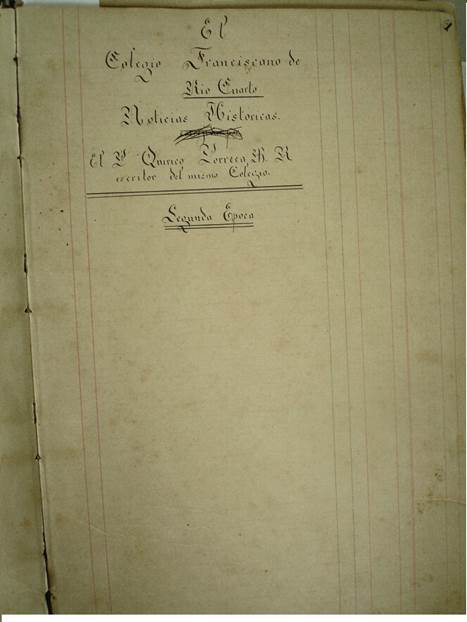 El
Colegio Franciscano de
Rio Cuarto
Noticias Historicas.
El P Quirico Porreca, M. R
escritor del mismo Colegio.
Segunda Epoca